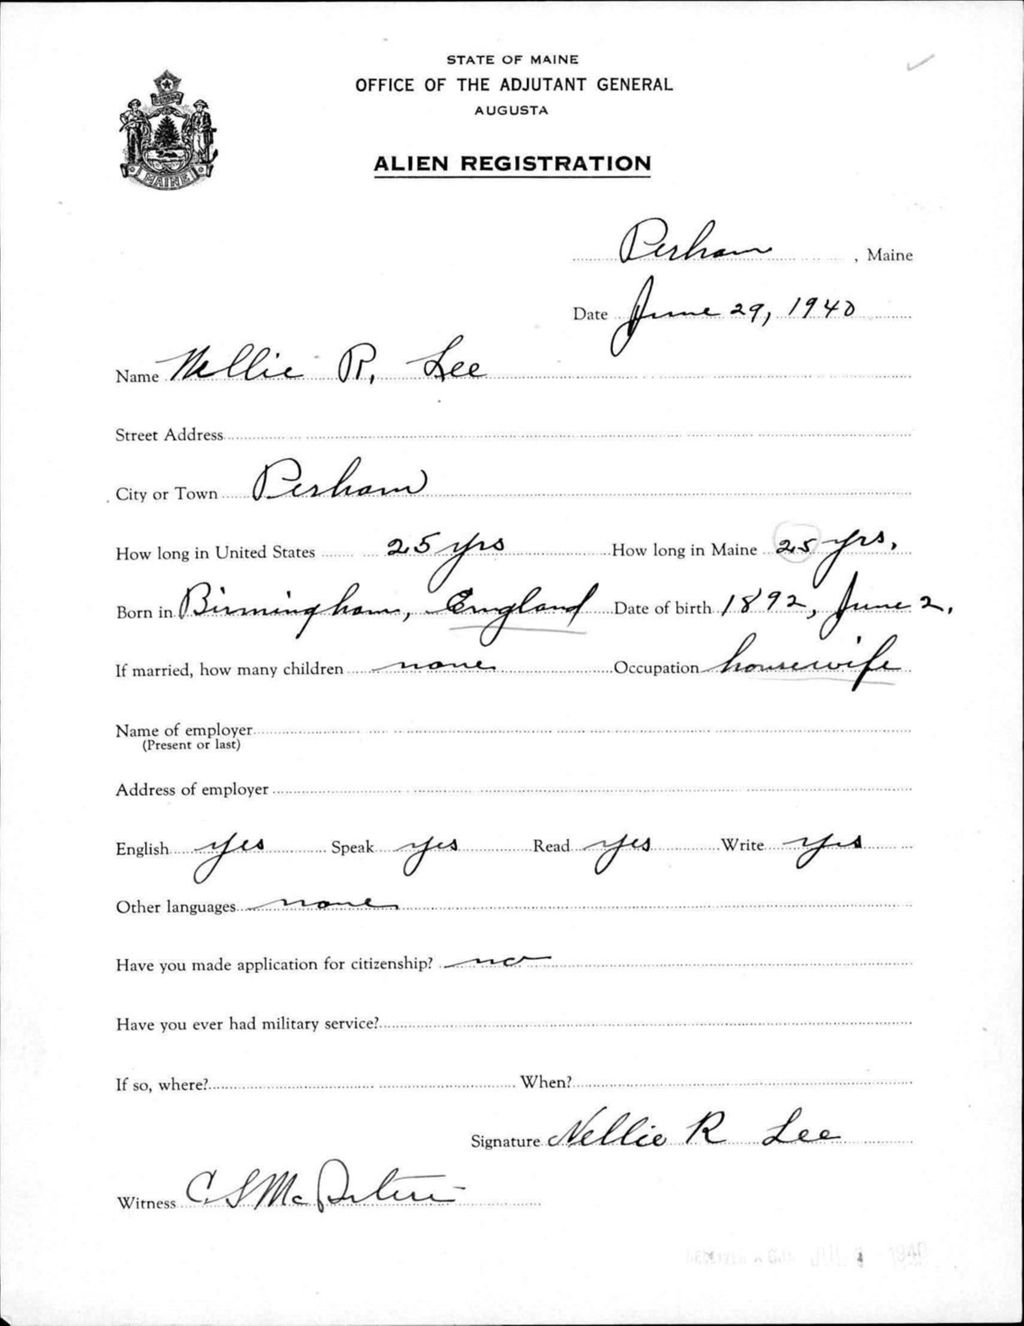 STATE OF MAINE
OFFICE OF THE ADJUTANT GENERAL
AUGUSTA
MAINE
ALIEN REGISTRATION
Perham, Maine
Date June 29, 1940
Name Nellie R. Lee
Street Address
City or Town Perham
How long in United States 25 yrs How long in Maine 25 yrs.
Born in Birmingham, England Date of birth 1892, June 2,
If married, how many children none Occupation housewife
Name of employer
(Present or last)
Address of employer
English yes Speak yes Read yes Write yes
Other languages none
Have you made application for citizenship? no
Have you ever had military service?
If so, where? When?
Signature Nellie R Lee
Witness C S Mc